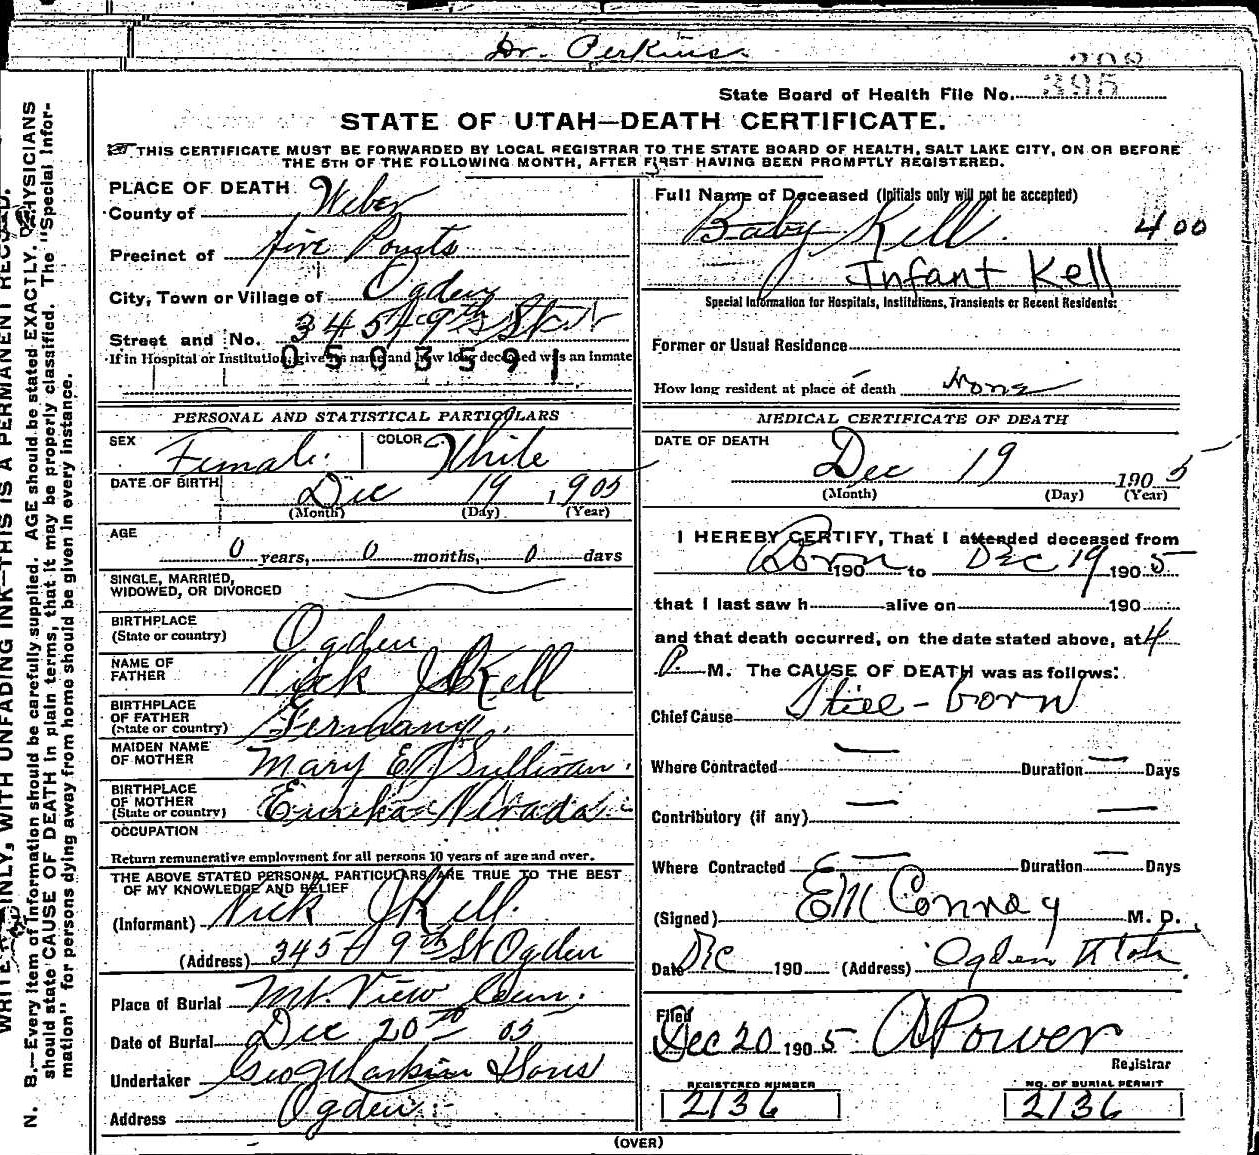 Dr. Perkins
208
395
State Board of Health File No.
STATE OF UTAH—DEATH CERTIFICATE.
THIS CERTIFICATE MUST BE FORWARDED BY LOCAL REGISTRAR TO THE STATE BOARD OF HEALTH, SALT LAKE CITY, ON OR BEFORE
THE 5TH OF THE FOLLOWING MONTH, AFTER FIRST HAVING BEEN PROMPTLY REGISTERED.
PLACE OF DEATH
County of Weber
Precinct of Five Points
City, Town or Village of Ogden
Street and No. 345 9th St
If in Hospital or Institution, give its name and how long deceased was an inmate
0503591
PERSONAL AND STATISTICAL PARTICULARS
SEX Female. COLOR White
DATE OF BIRTH Dec 19, 1905
(Month) (Day) (Year)
AGE 0 years, 0 months, 0 days
SINGLE, MARRIED,
WIDOWED, OR DIVORCED
BIRTHPLACE
(State or country) Ogden
NAME OF
FATHER Nick J Kell
BIRTHPLACE
OF FATHER
(State or country) Germany.
MAIDEN NAME
OF MOTHER Mary E. O'Sullivan.
BIRTHPLACE
OF MOTHER
(State or country) Eureka Nevada
OCCUPATION
Return remunerative employment for all persons 10 years of age and over.
THE ABOVE STATED PERSONAL PARTICULARS ARE TRUE TO THE BEST
OF MY KNOWLEDGE AND BELIEF
(Informant) Nick J Kell.
(Address) 345 9th St Ogden
Place of Burial Mt. View Cem.
Date of Burial Dec 20th 05
Undertaker Geo Larkin & Sons
Address Ogden
Full Name of Deceased (Initials only will not be accepted)
Baby Kell. 400
Infant Kell
Special Information for Hospitals, Institutions, Transients or Recent Residents:
Former or Usual Residence
How long resident at place of death None
MEDICAL CERTIFICATE OF DEATH
DATE OF DEATH
Dec 19 1905
(Month) (Day) (Year)
I HEREBY CERTIFY, That I attended deceased from
Born 190 to Dec 19 1905
that I last saw h alive on 190
and that death occurred, on the date stated above, at 4
P. M. The CAUSE OF DEATH was as follows:
Chief Cause Still-born
Where Contracted — Duration — Days
Contributory (if any) — —
Where Contracted — Duration — Days
(Signed) E M Conroy M. D.
Date Dec 190 (Address) Ogden Utah
Filed
Dec 20 1905 A Power
Registrar
REGISTERED NUMBER NO. OF BURIAL PERMIT
2136 2136
(OVER)
N. B.—Every item of information should be carefully supplied. AGE should be stated EXACTLY. PHYSICIANS
should state CAUSE OF DEATH in plain terms, that it may be properly classified. The "Special Infor-
mation" for persons dying away from home should be given in every instance.
UNFADING INK—THIS IS A PERMANENT